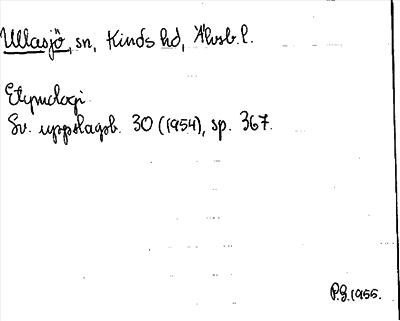 Ullasjö, sn, Kinds hd, Älvsb. l.
Etymologi
Sv. uppslagsb. 30 (1954), sp. 367.
P.G. 1955.